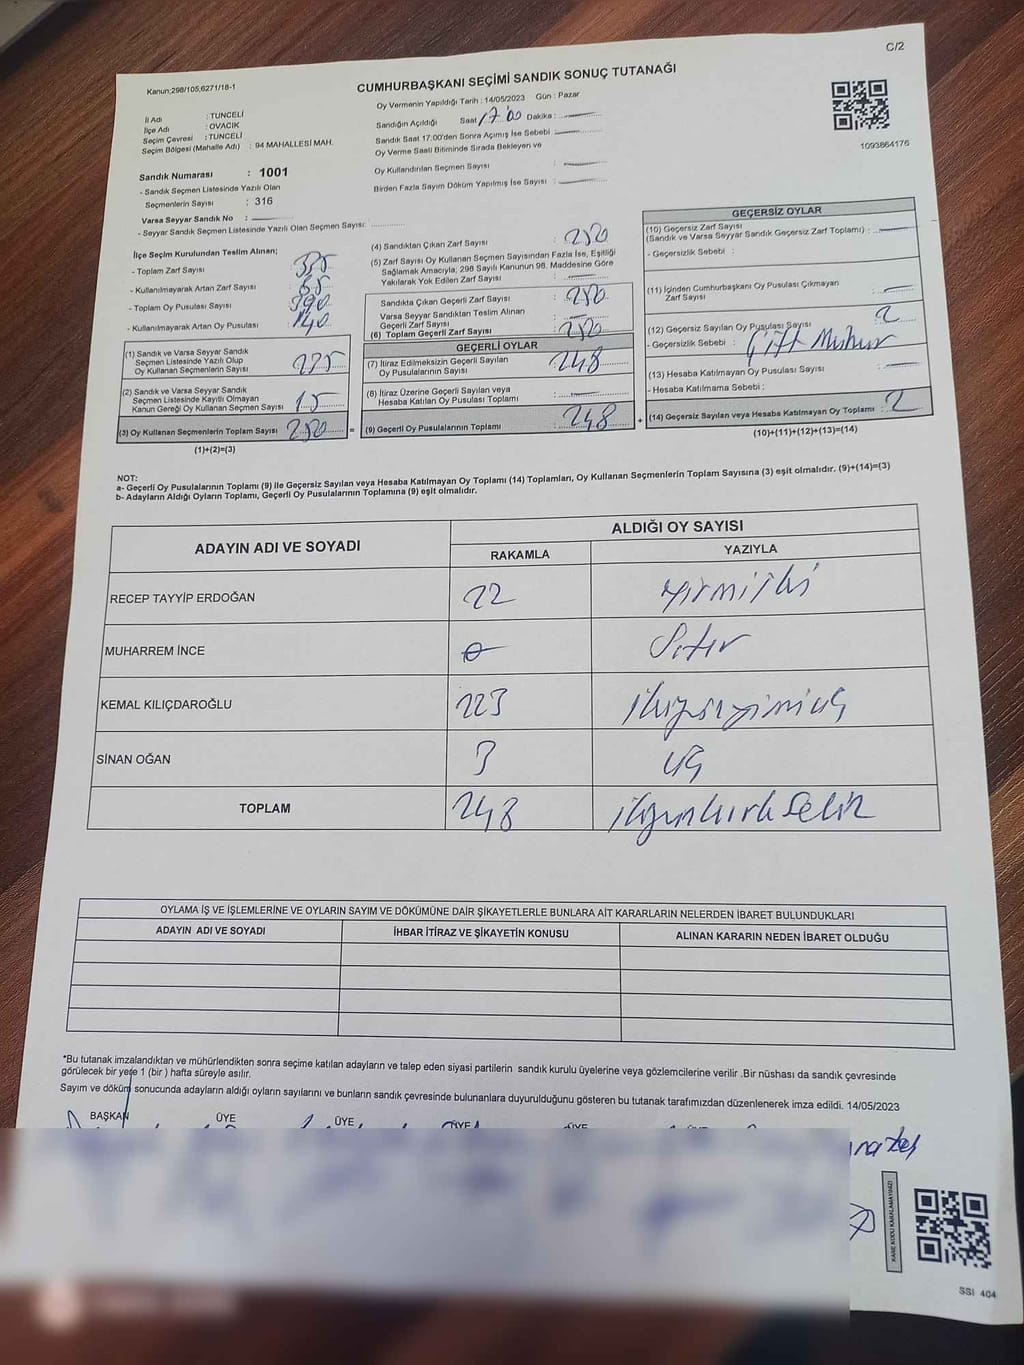 C/2
Kanun;298/105,6271/18-1
CUMHURBAŞKANI SEÇİMİ SANDIK SONUÇ TUTANAĞI
Oy Vermenin Yapıldığı Tarih : 14/05/2023 Gün : Pazar
İl Adı : TUNCELİ
İlçe Adı : OVACIK
Seçim Çevresi : TUNCELİ
Seçim Bölgesi (Mahalle Adı) : 94 MAHALLESİ MAH.
Sandığın Açıldığı Saat 17 00 Dakika :
Sandık Saat 17.00'den Sonra Açımış İse Sebebi
Oy Verme Saati Bitiminde Sırada Bekleyen ve
Oy Kullandırılan Seçmen Sayısı :
Birden Fazla Sayım Döküm Yapılmış İse Sayısı :
1093864176
Sandık Numarası : 1001
- Sandık Seçmen Listesinde Yazılı Olan
Seçmenlerin Sayısı : 316
Varsa Seyyar Sandık No :
- Seyyar Sandık Seçmen Listesinde Yazılı Olan Seçmen Sayısı:
İlçe Seçim Kurulundan Teslim Alınan;
- Toplam Zarf Sayısı :
- Kullanılmayarak Artan Zarf Sayısı :
- Toplam Oy Pusulası Sayısı : 390
- Kullanılmayarak Artan Oy Pusulası : 140
(1) Sandık ve Varsa Seyyar Sandık
Seçmen Listesinde Yazılı Olup
Oy Kullanan Seçmenlerin Sayısı : 235
(2) Sandık ve Varsa Seyyar Sandık
Seçmen Listesinde Kayıtlı Olmayan
Kanun Gereği Oy Kullanan Seçmen Sayısı : 15
(3) Oy Kullanan Seçmenlerin Toplam Sayısı : 250
(1)+(2)=(3)
(4) Sandıktan Çıkan Zarf Sayısı : 250
(5) Zarf Sayısı Oy Kullanan Seçmen Sayısından Fazla İse, Eşitliği
Sağlamak Amacıyla; 298 Sayılı Kanunun 98. Maddesine Göre
Yakılarak Yok Edilen Zarf Sayısı :
Sandıkta Çıkan Geçerli Zarf Sayısı : 250
Varsa Seyyar Sandıktan Teslim Alınan
Geçerli Zarf Sayısı :
(6) Toplam Geçerli Zarf Sayısı : 250
GEÇERLİ OYLAR
(7) İtiraz Edilmeksizin Geçerli Sayılan
Oy Pusulasının Sayısı : 248
(8) İtiraz Üzerine Geçerli Sayılan veya
Hesaba Katılan Oy Pusulası Toplamı :
= (9) Geçerli Oy Pusulalarının Toplamı : 248
GEÇERSİZ OYLAR
(10) Geçersiz Zarf Sayısı
(Sandık ve Varsa Seyyar Sandık Geçersiz Zarf Toplamı) :
- Geçersizlik Sebebi :
(11) İçinden Cumhurbaşkanı Oy Pusulası Çıkmayan
Zarf Sayısı :
(12) Geçersiz Sayılan Oy Pusulası Sayısı : 2
- Geçersizlik Sebebi : Çift Mühür
(13) Hesaba Katılmayan Oy Pusulası Sayısı :
- Hesaba Katılmama Sebebi :
+ (14) Geçersiz Sayılan veya Hesaba Katılmayan Oy Toplamı : 2
(10)+(11)+(12)+(13)=(14)
NOT:
a- Geçerli Oy Pusulalarının Toplamı (9) ile Geçersiz Sayılan veya Hesaba Katılmayan Oy Toplamı (14) Toplamları, Oy Kullanan Seçmenlerin Toplam Sayısına (3) eşit olmalıdır. (9)+(14)=(3)
b- Adayların Aldığı Oyların Toplamı, Geçerli Oy Pusulalarının Toplamına (9) eşit olmalıdır.
ADAYIN ADI VE SOYADI
ALDIĞI OY SAYISI
RAKAMLA YAZIYLA
RECEP TAYYİP ERDOĞAN 22 yirmiiki
MUHARREM İNCE 0 Sıfır
KEMAL KILIÇDAROĞLU 223 ikiyüzyirmiüç
SİNAN OĞAN 3 üç
TOPLAM 248 ikiyüzkırksekiz
OYLAMA İŞ VE İŞLEMLERİNE VE OYLARIN SAYIM VE DÖKÜMÜNE DAİR ŞİKAYETLERLE BUNLARA AİT KARARLARIN NELERDEN İBARET BULUNDUKLARI
ADAYIN ADI VE SOYADI İHBAR İTİRAZ VE ŞİKAYETİN KONUSU ALINAN KARARIN NEDEN İBARET OLDUĞU
*Bu tutanak imzalandıktan ve mühürlendikten sonra seçime katılan adayların ve talep eden siyasi partilerin sandık kurulu üyelerine veya gözlemcilerine verilir .Bir nüshası da sandık çevresinde
görülecek bir yere 1 (bir ) hafta süreyle asılır.
Sayım ve döküm sonucunda adayların aldığı oyların sayılarını ve bunların sandık çevresinde bulunanlara duyurulduğunu gösteren bu tutanak tarafımızdan düzenlenerek imza edildi. 14/05/2023
BAŞKAN ÜYE ÜYE ÜYE ÜYE ÜYE
KARE KODU KARALAMAYINIZ!
SSI 404